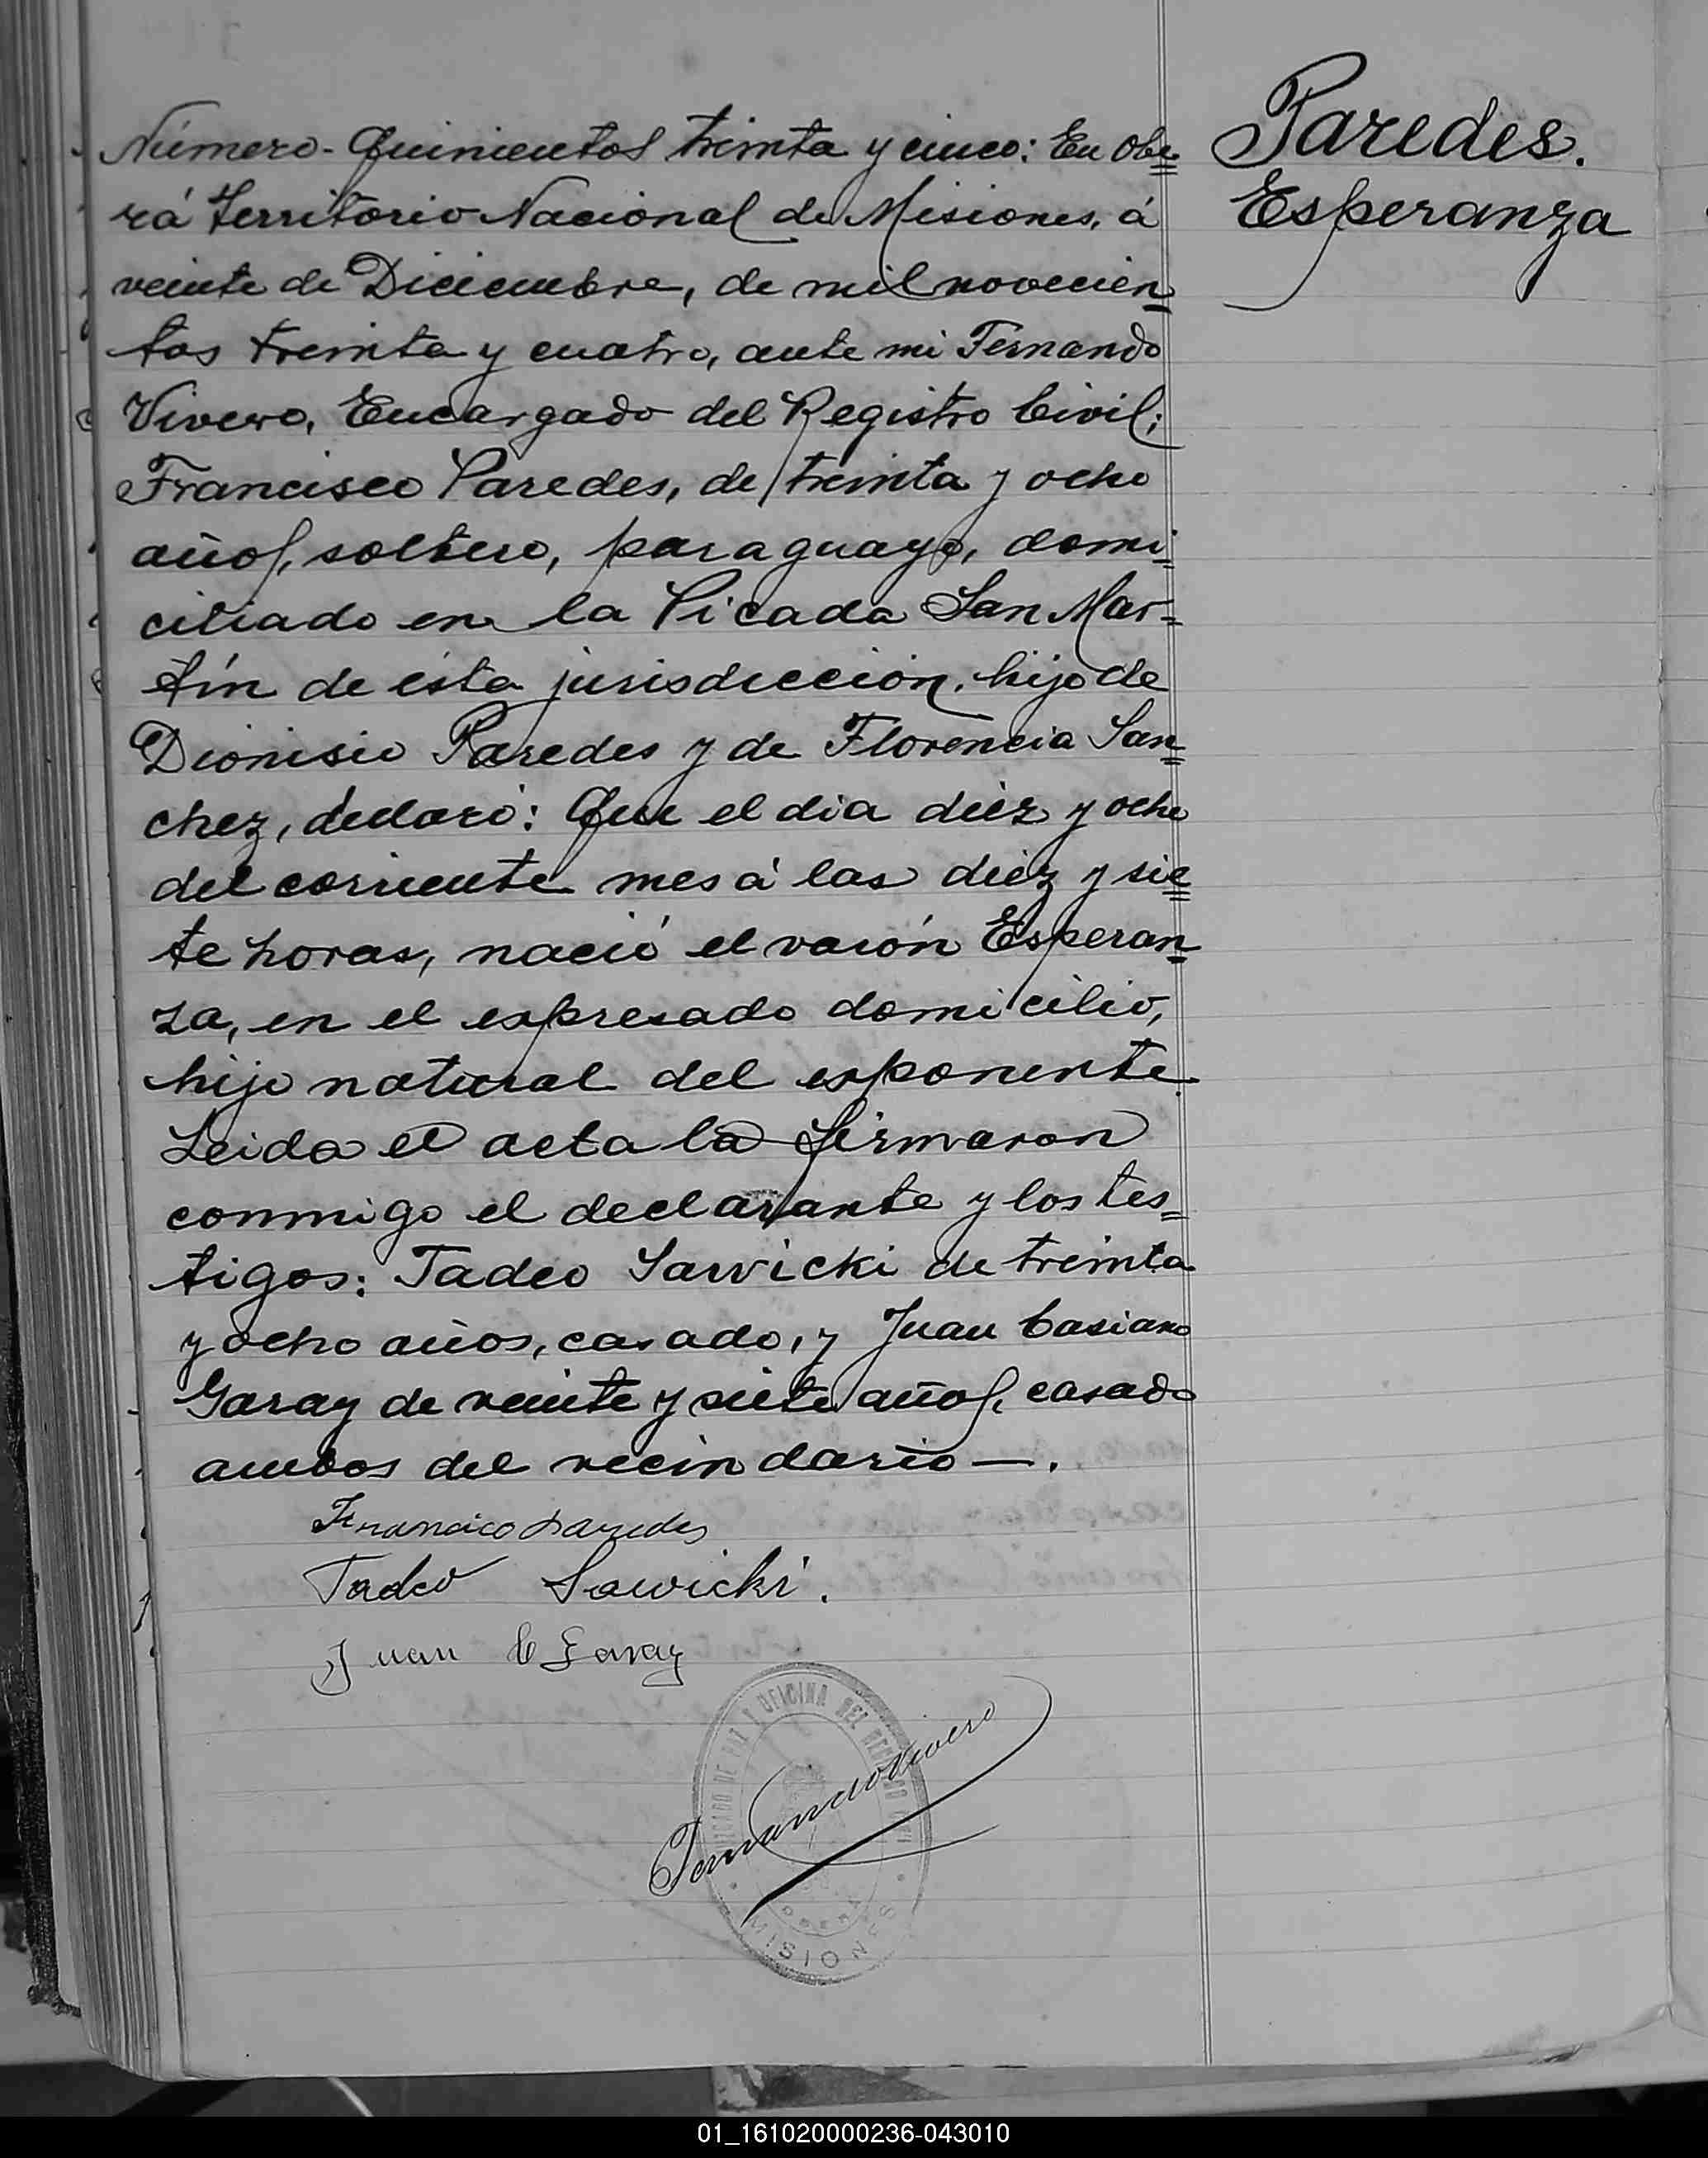 Paredes.
Esperanza
Número- Quinientos treinta y cinco: En Obe=
rá Territorio Nacional de Misiones, á
veinte de Diciembre, de mil novecien=
tos treinta y cuatro, ante mi Fernando
Vivero, Encargado del Registro Civil;
Francisco Paredes, de treinta y ocho
años, soltero, paraguayo, domi=
ciliado en la Picada San Mar=
tín de ésta jurisdicción, hijo de
Dionisio Paredes y de Florencia San=
chez, declaró: Que el dia diez y ocho
del corriente mes á las diez y sie=
te horas, nació el varón Esperan=
za, en el espresado domicilio,
hijo natural del esponente.
Leida el acta la firmaron
conmigo el declarante y los tes=
tigos: Tadeo Sawicki de treinta
y ocho años, casado, y Juan Casiano
Garay de veinte y siete años, casado
ambos del vecindario—.
Francico Paredes
Tadeo Sawicki.
Juan C Garay
Fernando Vivero
JUZGADO DE PAZ Y OFICINA DEL REGISTRO CIVIL
OBERÁ
MISIONES
01_161020000236-043010